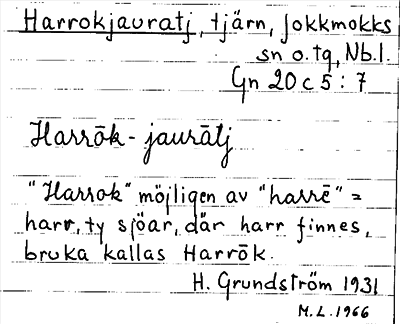 Harrokjauratj, tjärn, Jokkmokks
sn o. tg, Nb.l.
Gn 20 c 5 : 7
Harrōk - jaurātj
"Harrok" möjligen av "harrē" =
harr, ty sjöar, där harr finnes,
bruka kallas Harrōk.
H. Grundström 1931
M.L. 1966